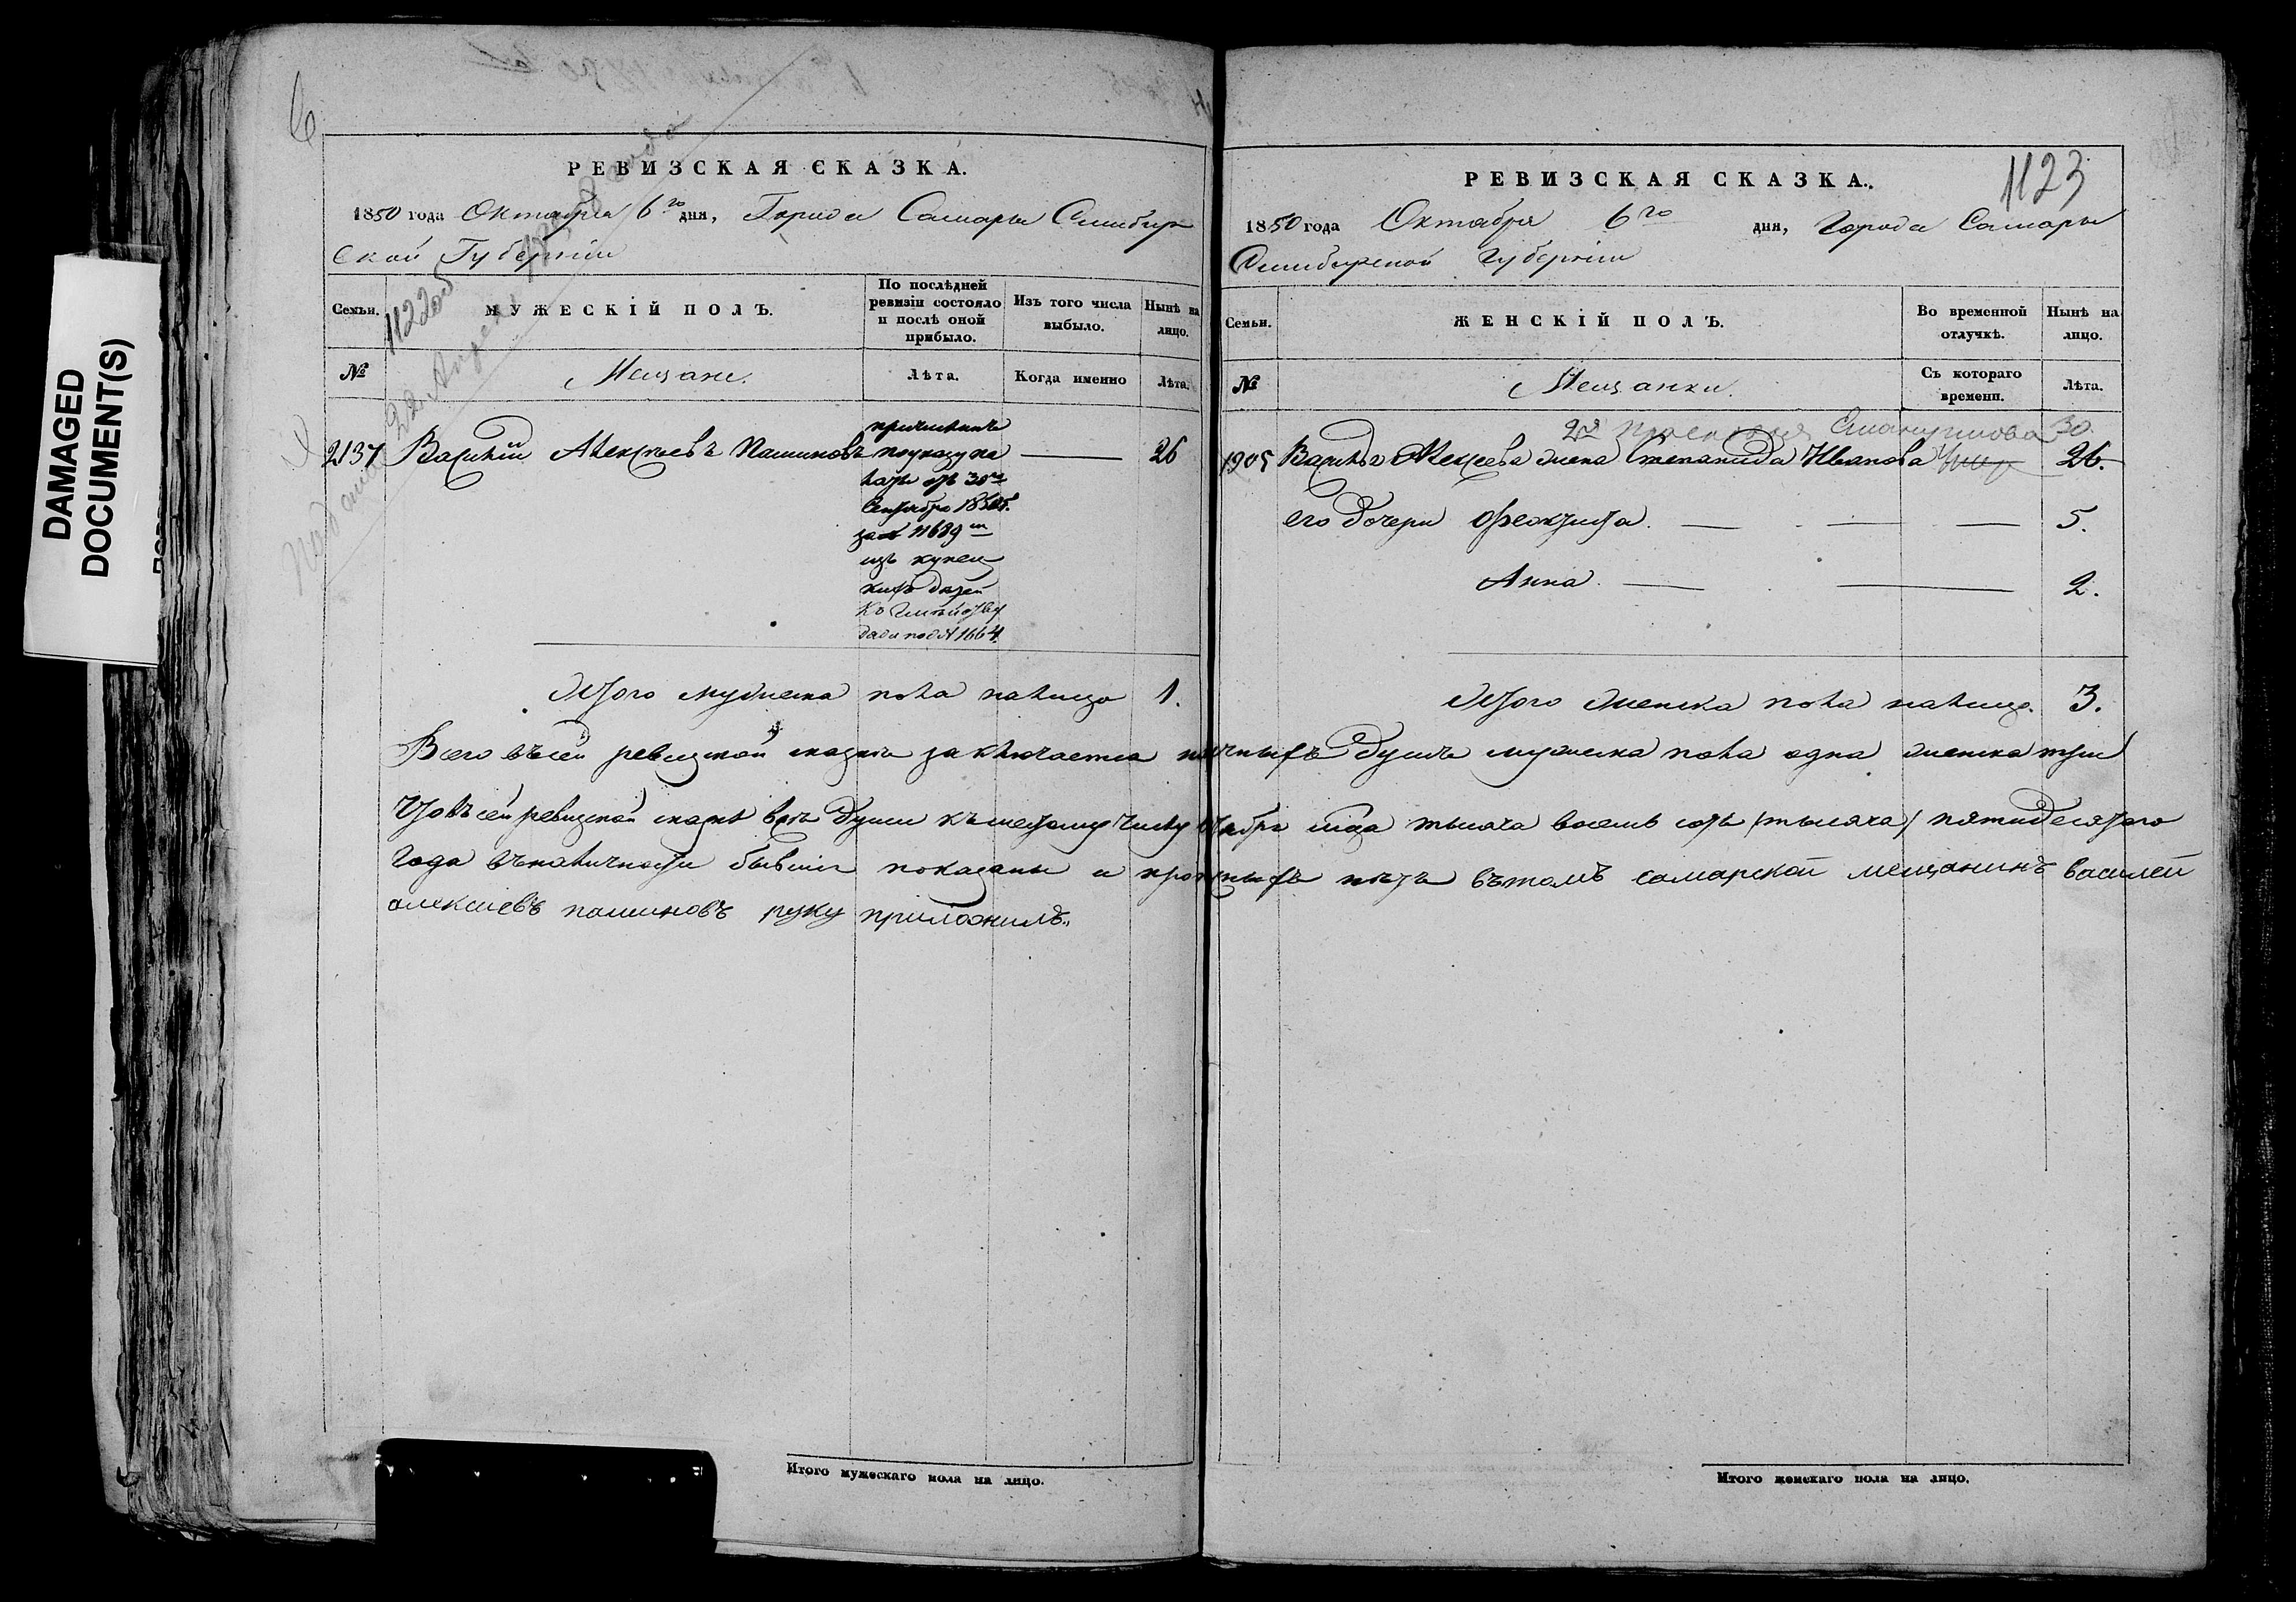 DAMAGED
DOCUMENT(S)
РЕВИЗСКАЯ СКАЗКА.
1850 года Октября 6го дня, Города Самары Симбир
ской Губернии
Семьи.
МУЖЕСКІЙ ПОЛЪ.
По послѣдней
ревизіи состояло
и послѣ оной
прибыло.
Изъ того числа
выбыло.
Нынѣ на
лицо.
№
Мещане.
Лѣта.
Когда именно
Лѣта.
11220
2137 Василій Алексѣевъ Пашиновъ
причисленъ
по указу па
латы отъ 30го
Сентября 1850
за № 11689м
изъ купец
кихъ детей
26
Итого мужеска пола налицо 1.
РЕВИЗСКАЯ СКАЗКА.
1123
1850 года Октября 6го дня, Города Самары
Симбирской Губернии
Семьи.
ЖЕНСКІЙ ПОЛЪ.
Во временной
отлучкѣ.
Нынѣ на
лицо.
№
Мещанки.
Съ котораго
времени.
Лѣта.
30
1905 Василья Алексеева жена Степанида Иванова 26.
его дочери Феоктиста 5.
Анна 2.
Итого женска пола налицо 3.
Всего въ сей ревизкой сказке заключается наличныхъ душъ мужеска пола одна женска три
Что въ сей ревизкой сказке все души къ шестому числу Октября мца тысяча восемь сотъ /тысяча/ пятидесятого
года въ наличности бывшие показаны и прописныхъ нетъ въ томъ самарской мещанинъ василей
алексиевъ пашиновъ руку приложилъ.
Итого мужескаго пола на лицо.
Итого женскаго пола на лицо.